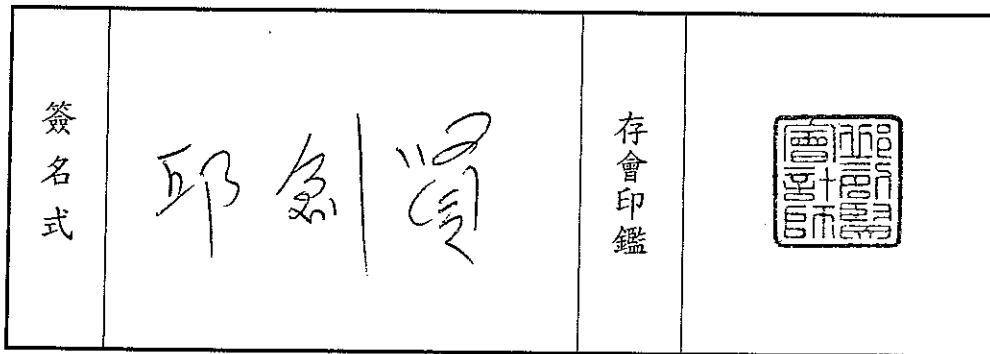 簽名式
邱賢
存會印鑑
邱賢
會計師